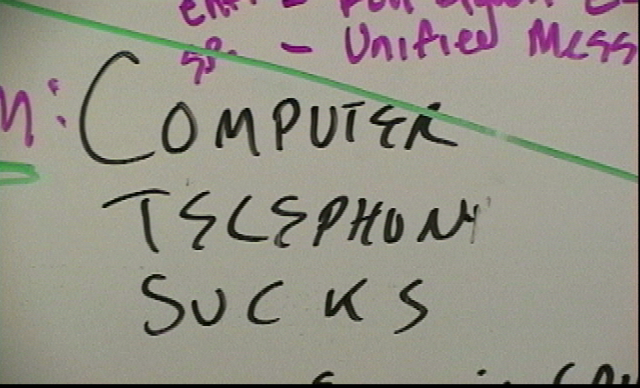 - Unified Mess
COMPUTER
TELEPHONY
SUCKS